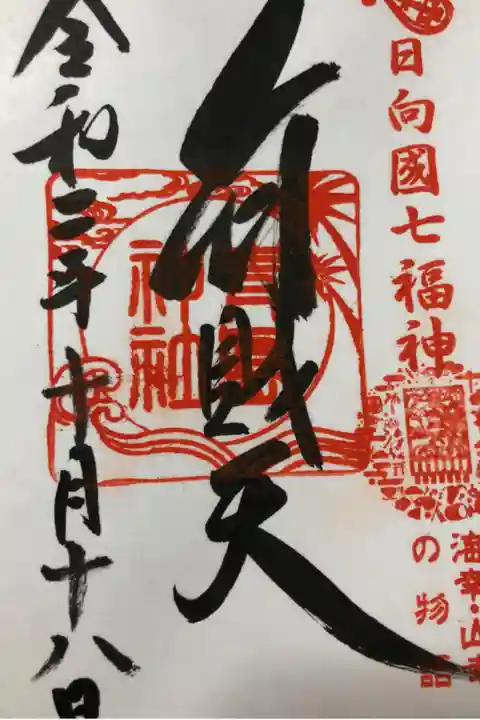 日向國七福神
海幸・山幸
の物語
弁財天
青島
神社
令和二年十月十八日